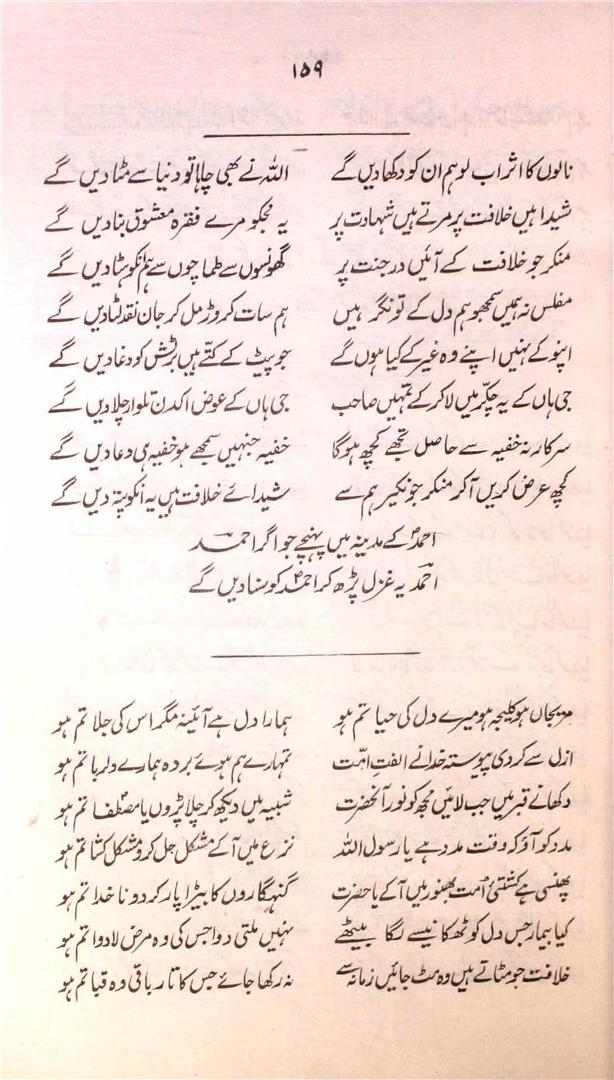 ۱۵۹
نالوں کا اثر اب لو ہم ان کو دکھا دیں گے اللہ نے بھی چاہا تو دنیا سے مٹا دیں گے
شیدا ہیں خلافت پر مرتے ہیں شہادت پر یہ مجکو مرے فقرہ معشوق بنا دیں گے
منکر جو خلافت کے آئیں در جنت پر گھونسوں سے طماچوں سے ہم انکو ہٹا دیں گے
مفلس نہ ہمیں سمجھو ہم دل کے تونگر ہیں ہم سات کروڑ مل کر جان نقد لٹا دیں گے
اپنو کے نہیں اپنے وہ غیر کے کیا ہوں گے جو پیٹ کے کتے ہیں برٹش کو دغا دیں گے
جی ہاں کے یہ چکّر میں لا کر کے تمہیں صاحب جی ہاں کے عوض اکدن تلوار چلا دیں گے
سرکار نہ خفیہ سے حاصل تجھے کچھ ہوگا خفیہ جنہیں سمجھے ہو خفیہ ہی دعا دیں گے
کچھ عرض کریں آ کر منکر جو نکیر ہم سے شیدائے خلافت ہیں یہ انکو پتہ دیں گے
احمدؐ کے مدینہ میں پہنچے جو اگر احمد
احمد یہ غزل پڑھ کر احمدؐ کو سنا دیں گے
مریجاں ہو کلیجہ ہو میرے دل کی حیا تم ہو ہمارا دل ہے آئینہ مگر اس کی جلا تم ہو
ازل سے کر دی پیوستہ خدا نے الفتِ امّت تمہارے ہم ہوئے بردہ ہمارے دلربا تم ہو
دکھانے قبر میں جب لائیں مجھ کو نور آنحضرت شبیہ میں دیکھ کر چلا پڑوں یا مصطفےٰ تم ہو
مدد کو آؤ کہ وقت مدد ہے یا رسول اللہ نزع میں آ کے مشکل حل کرو مشکل کشا تم ہو
پھنسی ہے کشتیٔ امت بھنور میں آ کے یا حضرت گنہگاروں کا بیڑا پار کر دو نا خدا تم ہو
کیا بیمار جس دل کو ٹھکانیسے لگا بیٹھے نہیں ملتی دوا جس کی وہ مرض لا دوا تم ہو
خلافت جو مٹاتے ہیں وہ مٹ جائیں زمانہ سے نہ رکھا جائے جس کا تار باقی وہ قبا تم ہو